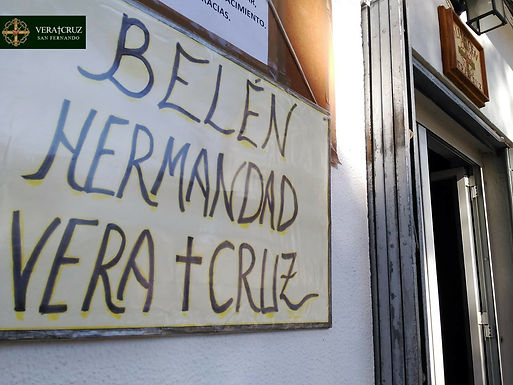 VERA†CRUZ
SAN FERNANDO
NACIMIENTO.
GRACIAS.
BELÉN
HERMANDAD
VERA † CRUZ